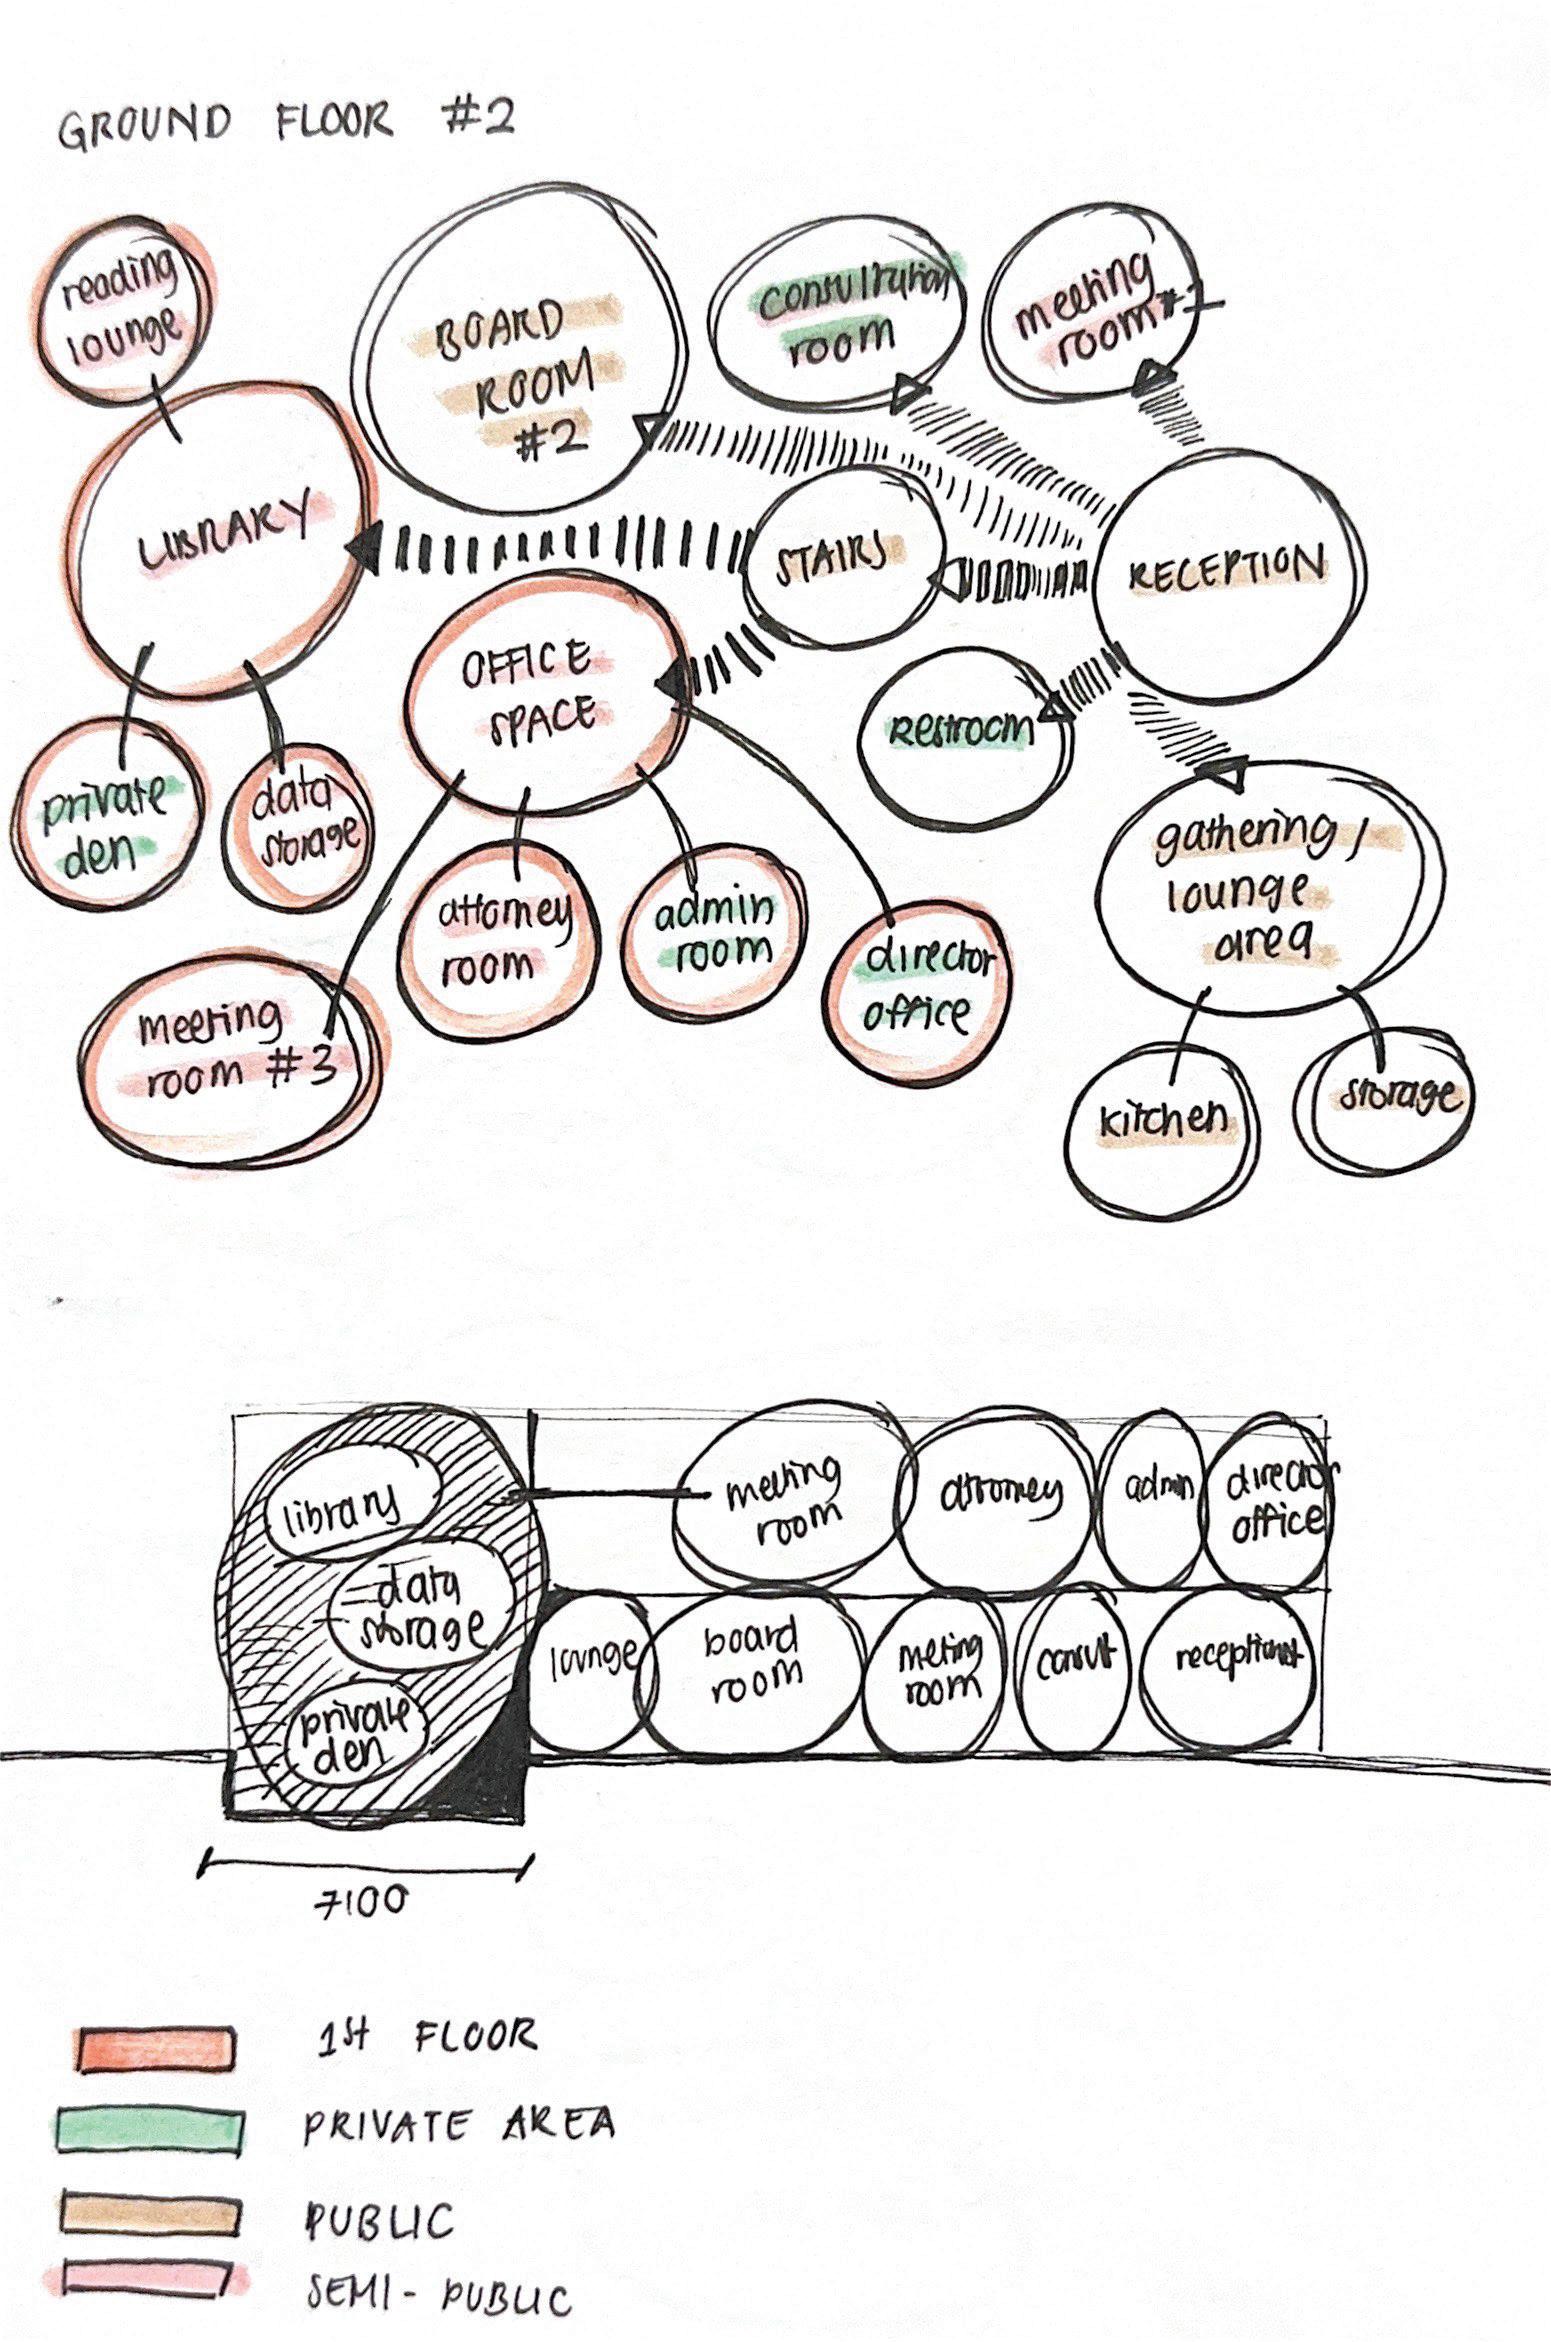 GROUND FLOOR #2
reading
lounge
BOARD
ROOM
#2
consultation
room
meeting
room #1
LIBRARY
STAIRS
RECEPTION
OFFICE
SPACE
Restroom
private
den
data
storage
gathering /
lounge
area
attorney
room
admin
room
director
office
meeting
room #3
kitchen
storage
library
data
storage
private
den
meeting
room
attorney
admin
director
office
lounge
board
room
meeting
room
consult
receptionist
7100
1st FLOOR
PRIVATE AREA
PUBLIC
SEMI-PUBLIC